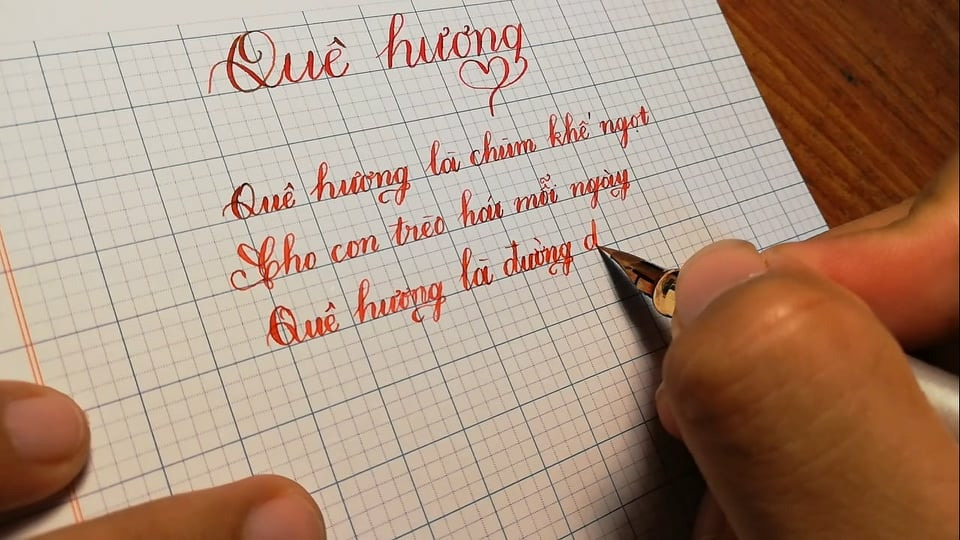 Quê hương
Quê hương là chùm khế ngọt
Cho con trèo hái mỗi ngày
Quê hương là đường đ